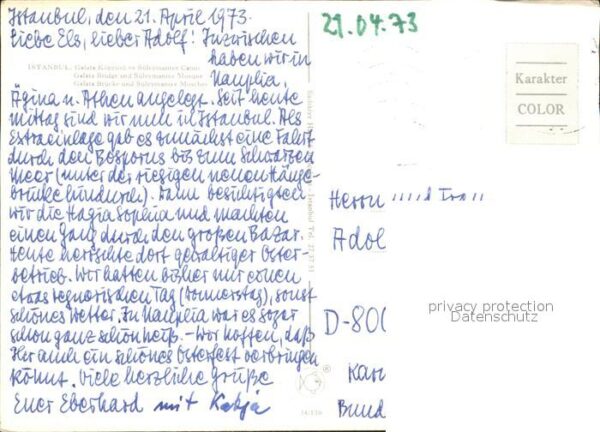 Istanbul, den 21. April 1973.
Liebe Els, lieber Adolf! Inzwischen
haben wir in
Nauplia,
Ägina u. Athen angelegt. Seit heute
mittag sind wir nun in Istanbul. Als
Extraeinlage gab es zunächst eine Fahrt
durch den Bosporus bis zum Schwarzen
Meer (unter der riesigen neuen Hänge-
brücke hindurch). Dann besichtigten
wir die Hagia Sophia und machten
einen Gang durch den großen Bazar.
Heute herrschte dort gewaltiger Oster-
betrieb. Wir hatten bisher nur einen
etwas regnerischen Tag (Donnerstag), sonst
schönes Wetter. In Nauplia war es sogar
schon ganz schön heiß. - Wir hoffen, daß
Ihr auch ein schönes Osterfest verbringen
könnt. Viele herzliche Grüße
Euer Eberhard mit Katja
İSTANBUL. Galata Köprüsü ve Süleymaniye Camii
Galata Bridge and Süleymaniye Mosque
Galata Brücke und Süleymaniye Moschee
21.04.73
Karakter
COLOR
Herrn und Frau
Adol
D-800
Bund
privacy protection
Datenschutz